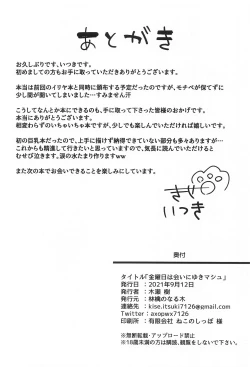 あとがき
お久しぶりです、いつきです。
初めましての方もお手に取っていただきありがとうございます。
本当は前回のイリヤ本と同時に頒布する予定だったのですが、モチベが保てずに
少し間が開いてしまいました…すみません汗
こうしてなんとか本にできるのも、手に取って下さった皆様のおかげです。
本当にありがとうございます。
相変わらずのいちゃいちゃ本ですが、少しでも楽しんでいただけたら幸いです。
初の巨乳本だったので、上手に描けず納得できていない部分も多々ありますが…
これからも精進して行きたいと思っていますので、気長に読んでいただけると
むせび泣きます。涙の水たまり作りますww
また次の本でお会いできることを楽しみにしています。
いつき
奥付
タイトル「金曜日は会いにゆきマシュ」
発行日 : 2021年9月12日
発行者 : 木瀬 樹
発行元 : 林檎のなる木
連絡先 : kise.itsuki7126@gmail.com
Twitter : axopwx7126
印刷所 : 有限会社 ねこのしっぽ 様
※無断転載・アップロード禁止
※18歳未満の方は購読、観覧をしないで下さい。